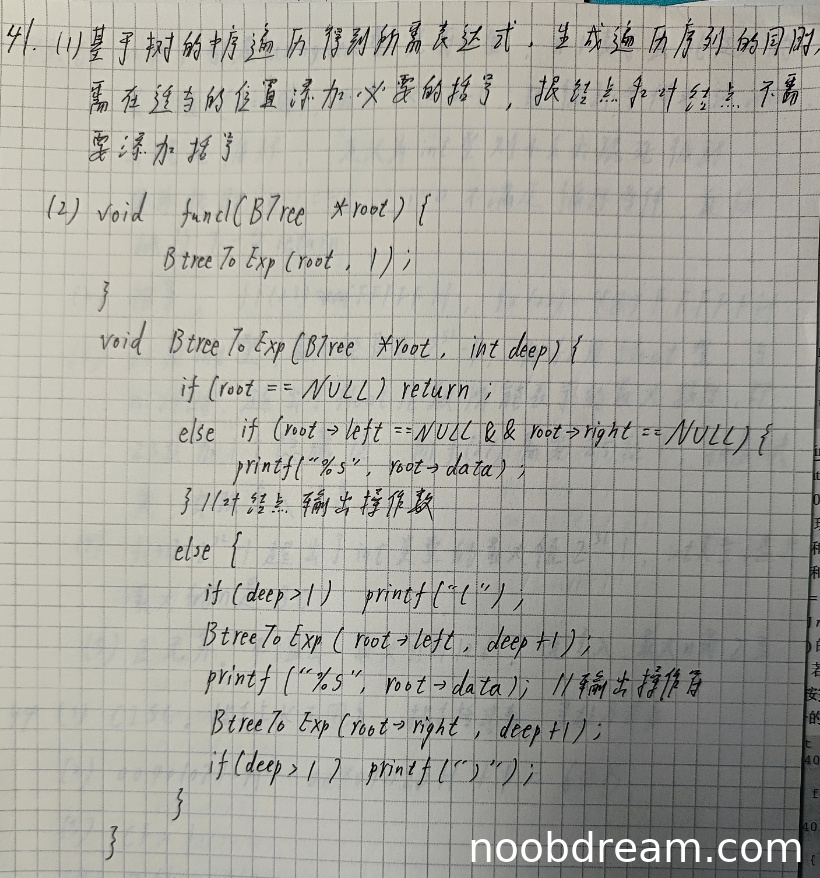 41. (1) 基于树的中序遍历得到所需表达式. 生成遍历序列的同时,
需在适当的位置添加必要的括号, 根结点和叶结点不需
要添加括号
(2) void func1(BTree *root) {
BtreeToExp(root, 1);
}
void BtreeToExp(BTree *root, int deep) {
if (root == NULL) return;
else if (root→left == NULL && root→right == NULL) {
printf("%s", root→data);
} //叶结点输出操作数
else {
if (deep>1) printf("(");
BtreeToExp(root→left, deep+1);
printf("%s", root→data); //输出操作符
BtreeToExp(root→right, deep+1);
if (deep>1) printf(")");
}
}
noobdream.com